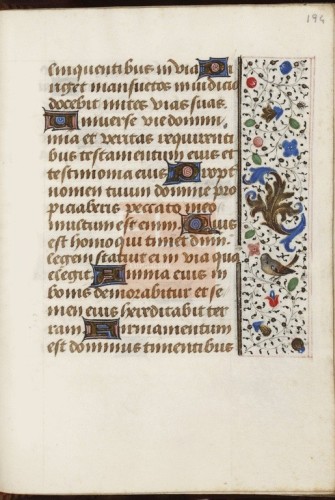 194
linquentibus in via Di
riget mansuetos in iudicio
docebit mites vias suas.
Universe vie domini,
mia et veritas requirenti
bus testamentum eius et
testimonia eius Propt
nomen tuum domine pro
piciaberis peccato meo
multum est enim. Quis
est homo qui timet dnm.
legem statuet ei in via qua
elegit Anima eius in
bonis demorabitur et se
men eius hereditabit ter
ram. Firmamentum
est dominus timentibus